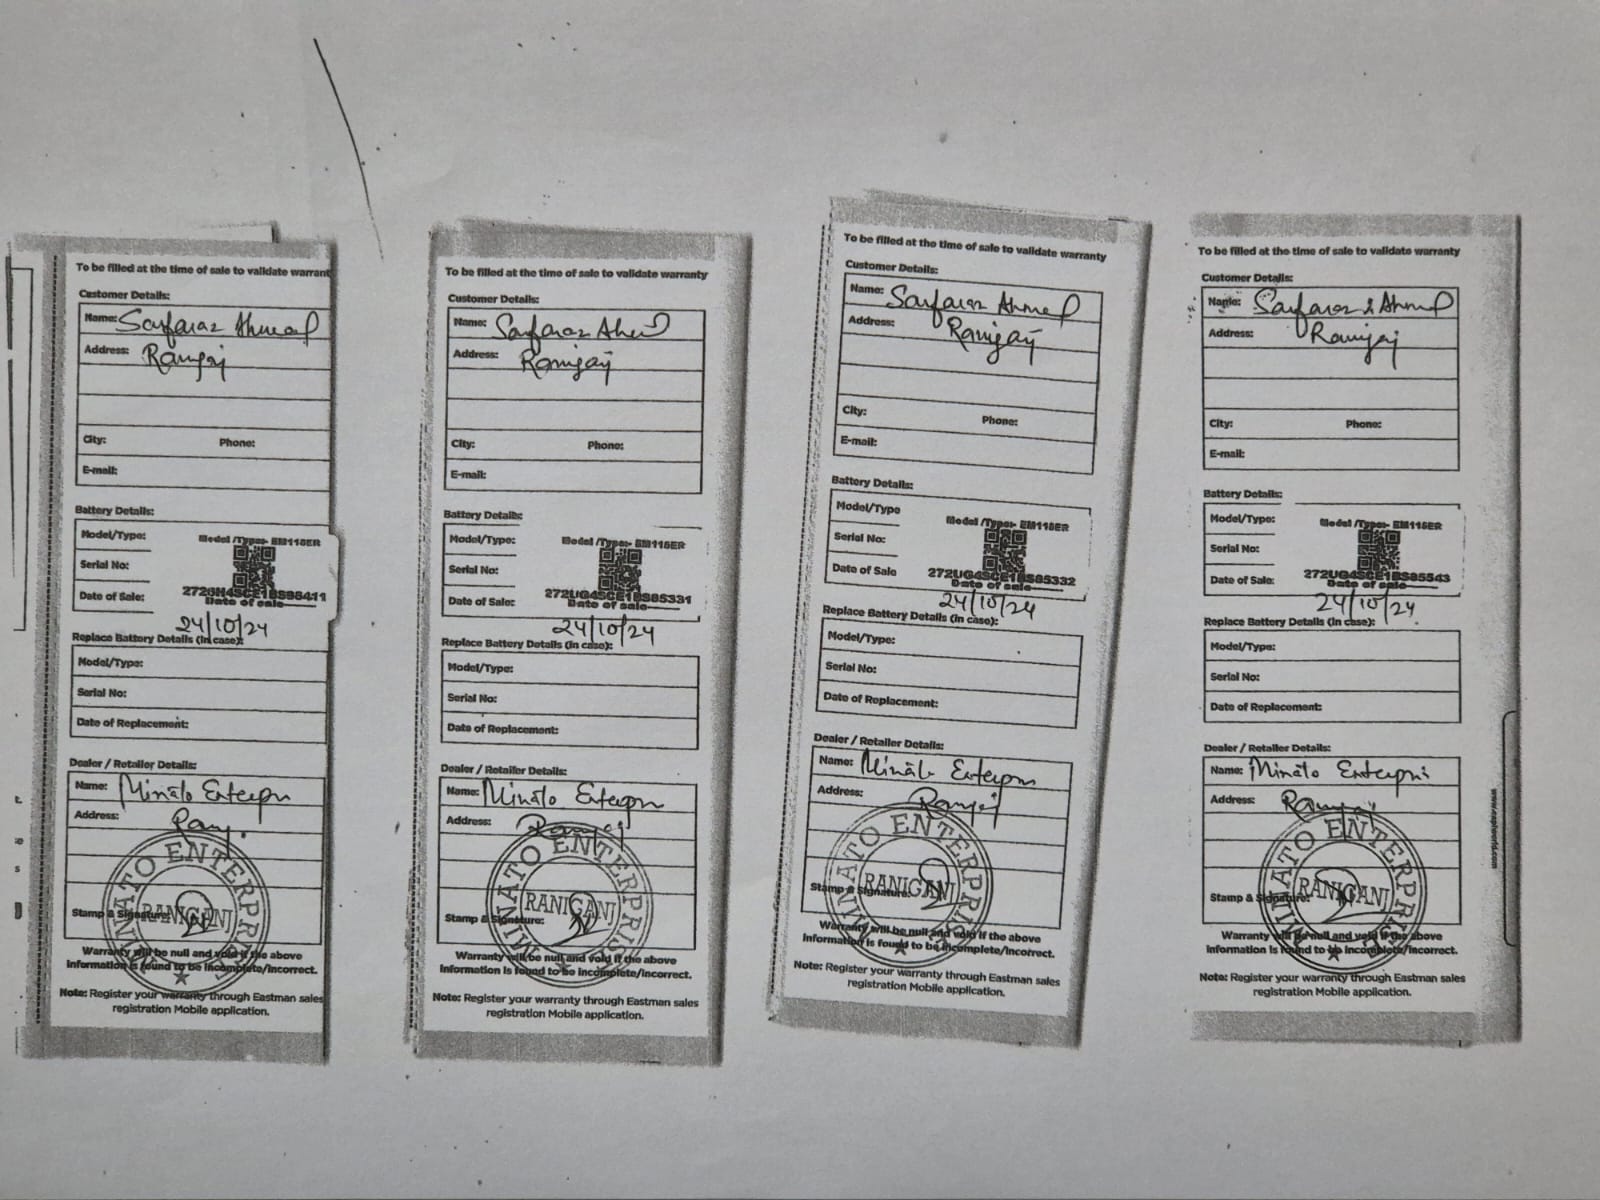 To be filled at the time of sale to validate warrant
Customer Details:
Name: Sarfaraz Ahmad
Address: Raniganj
City: Phone:
E-mail:
Battery Details:
Model/Type: Model /Type:- EM115ER
Serial No:
Date of Sale:
Date of sale
24/10/24
Replace Battery Details (In case):
Model/Type:
Serial No:
Date of Replacement:
Dealer / Retailer Details:
Name: Minato Enterpri
Address:
MINATO ENTERPRISE
RANIGANJ
Stamp & Signature:
Warranty will be null and void if the above
Information is found to be Incomplete/Incorrect.
Note: Register your warranty through Eastman sales
registration Mobile application.
To be filled at the time of sale to validate warranty
Customer Details:
Name: Sarfaraz
Address: Raniganj
City: Phone:
E-mail:
Battery Details:
Model/Type: Model /Type:- EM115ER
Serial No:
272UG4SCE1BS85331
Date of Sale: Date of sale
24/10/24
Replace Battery Details (In case):
Model/Type:
Serial No:
Date of Replacement:
Dealer / Retailer Details:
Name: Minato Enterpri
Address: Raniganj
MINATO ENTERPRISE
RANIGANJ
Stamp & Signature:
Warranty will be null and void if the above
Information is found to be Incomplete/Incorrect.
Note: Register your warranty through Eastman sales
registration Mobile application.
To be filled at the time of sale to validate warranty
Customer Details:
Name: Sarfaraz Ahmad
Address: Raniganj
City: Phone:
E-mail:
Battery Details:
Model/Type Model /Type:- EM115ER
Serial No:
272UG4SCE1BS85332
Date of Sale Date of sale
24/10/24
Replace Battery Details (In case):
Model/Type:
Serial No:
Date of Replacement:
Dealer / Retailer Details:
Name: Minato Enterpri
Address: Raniganj
MINATO ENTERPRISE
RANIGANJ
Stamp & Signature:
Warranty will be null and void if the above
Information is found to be Incomplete/Incorrect.
Note: Register your warranty through Eastman sales
registration Mobile application.
To be filled at the time of sale to validate warranty
Customer Details:
Name: Sarfaraz Ahmad
Address: Raniganj
City: Phone:
E-mail:
Battery Details:
Model/Type: Model /Type:- EM115ER
Serial No:
272UG4SCE1BS85543
Date of Sale: Date of sale
24/10/24
Replace Battery Details (In case):
Model/Type:
Serial No:
Date of Replacement:
Dealer / Retailer Details:
Name: Minato Enterpri
Address: Raniganj
MINATO ENTERPRISE
RANIGANJ
Stamp & Signature:
Warranty will be null and void if the above
Information is found to be Incomplete/Incorrect.
Note: Register your warranty through Eastman sales
registration Mobile application.